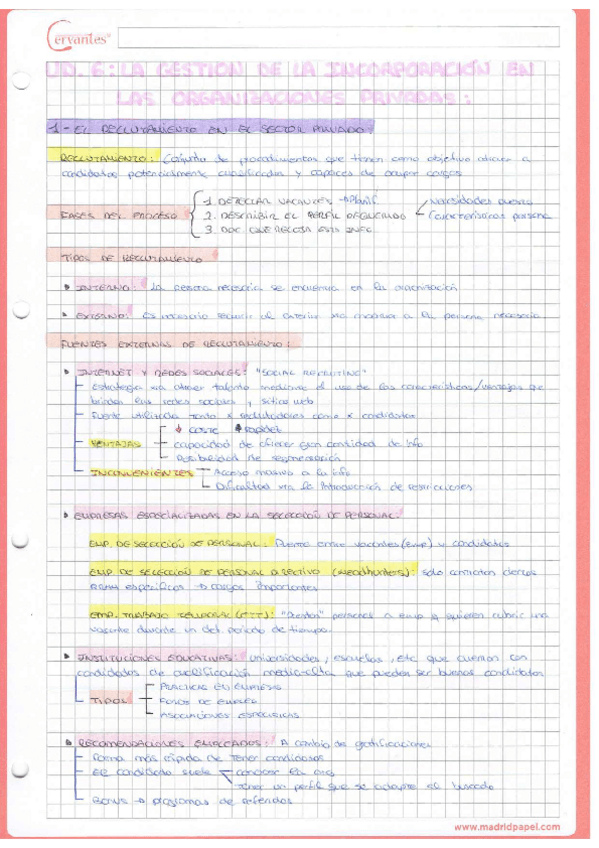 Cervantes
UD. 6: LA GESTIÓN DE LA INCORPORACIÓN EN
LAS ORGANIZACIONES PRIVADAS:
1 - EL RECLUTAMIENTO EN EL SECTOR PRIVADO:
RECLUTAMIENTO: Conjunto de procedimientos que tienen como objetivo atraer a
candidatos potencialmente cualificados y capaces de ocupar cargos
FASES DEL PROCESO
1. DETECTAR VACANTES → Planif.
2. DESCRIBIR EL PERFIL REQUERIDO
Necesidades puesto
Características persona
3. DOC QUE RECOJA ESTA INFO
TIPOS DE RECLUTAMIENTO
INTERNO: La persona necesaria se encuentra en la organización
EXTERNO: Es necesario recurrir al exterior para la persona necesaria
FUENTES EXTERNAS DE RECLUTAMIENTO:
INTERNET Y REDES SOCIALES: "SOCIAL RECRUITING"
Estrategia xa atraer talento mediante el uso de las características/ventajas que
brindan las redes sociales y sitios web
Fuente utilizada tanto x reclutadores como x candidatos
VENTAJAS
↓ COSTE ↑ rapidez
capacidad de ofrecer gran cantidad de info
Posibilidad de segmentación
INCONVENIENTES
Acceso masivo a la info
Dificultad xa la introducción de restricciones
EMPRESAS ESPECIALIZADAS EN LA SELECCIÓN DE PERSONAL:
EMP. DE SELECCIÓN DE PERSONAL: Puente entre vacantes (emp) y candidatos
EMP. DE SELECCIÓN DE PERSONAL DIRECTIVO (headhunters): solo contratan ciertos
RRHH específicos → cargos importantes
EMP. TRABAJO TEMPORAL (ETT): "Prestan" personas a emp q quieren cubrir una
vacante durante un det. periodo de tiempo.
INSTITUCIONES EDUCATIVAS: universidades, escuelas, etc que cuentan con
candidatos de cualificación media-alta que pueden ser buenos candidatos
TIPOS
PRÁCTICAS EN EMPRESAS
FOROS DE EMPLEO
ASOCIACIONES ESPECÍFICAS
RECOMENDACIONES EMPLEADOS: A cambio de gratificaciones
Forma más rápida de tener candidatos
El candidato suele
conocer la org
tener un perfil que se adapta al buscado
Bonus → programas de referidos
www.madridpapel.com